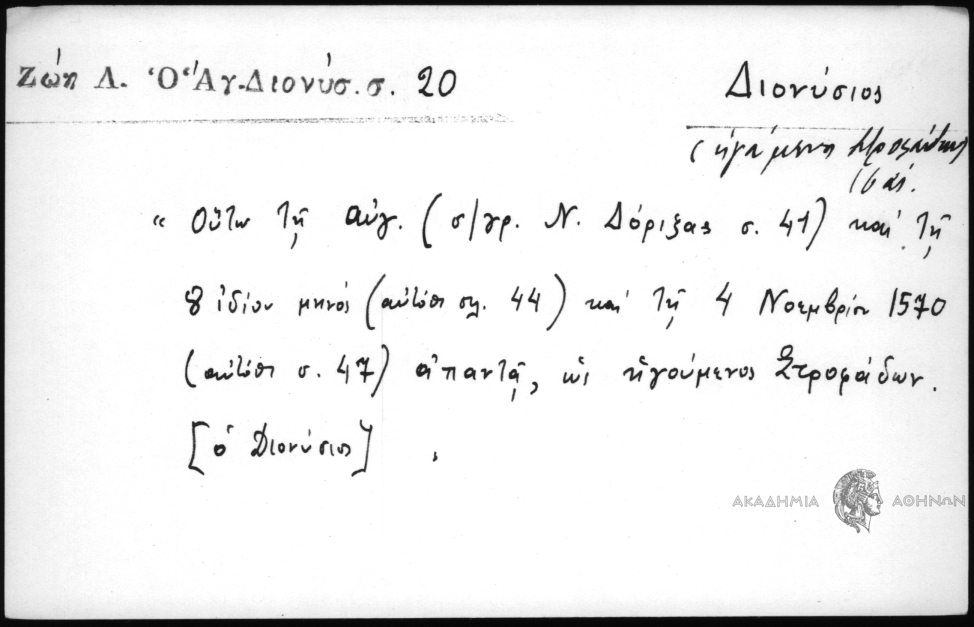 Ζώη Λ. Ὁ Ἅγ. Διονύσ. σ. 20
Διονύσιος
(ἡγούμενος Στροφάδων
16 αἰ.
« Οὕτω τῇ αὐγ. (σ/γρ. Ν. Δόριζας σ. 41) καὶ τῇ
8 ἰδίου μηνός (αὐτόθι σελ. 44) καὶ τῇ 4 Νοεμβρίου 1570
(αὐτόθι σ. 47) ἀπαντᾷ, ὡς ἡγούμενος Στροφάδων.
[ὁ Διονύσιος]
ΑΚΑΔΗΜΙΑ ΑΘΗΝΩΝ